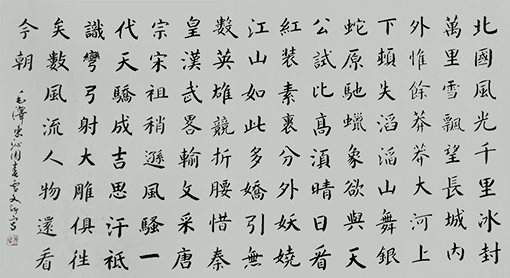 北國風光千里冰封
萬里雪飄望長城內
外惟餘莽莽大河上
下頓失滔滔山舞銀
蛇原馳蠟象欲與天
公試比高須晴日看
紅裝素裹分外妖嬈
江山如此多嬌引無
數英雄競折腰惜秦
皇漢武畧輸文采唐
宗宋祖稍遜風騷一
代天驕成吉思汗祗
識彎弓射大雕俱往
矣數風流人物還看
今朝
毛澤東沁園春雪